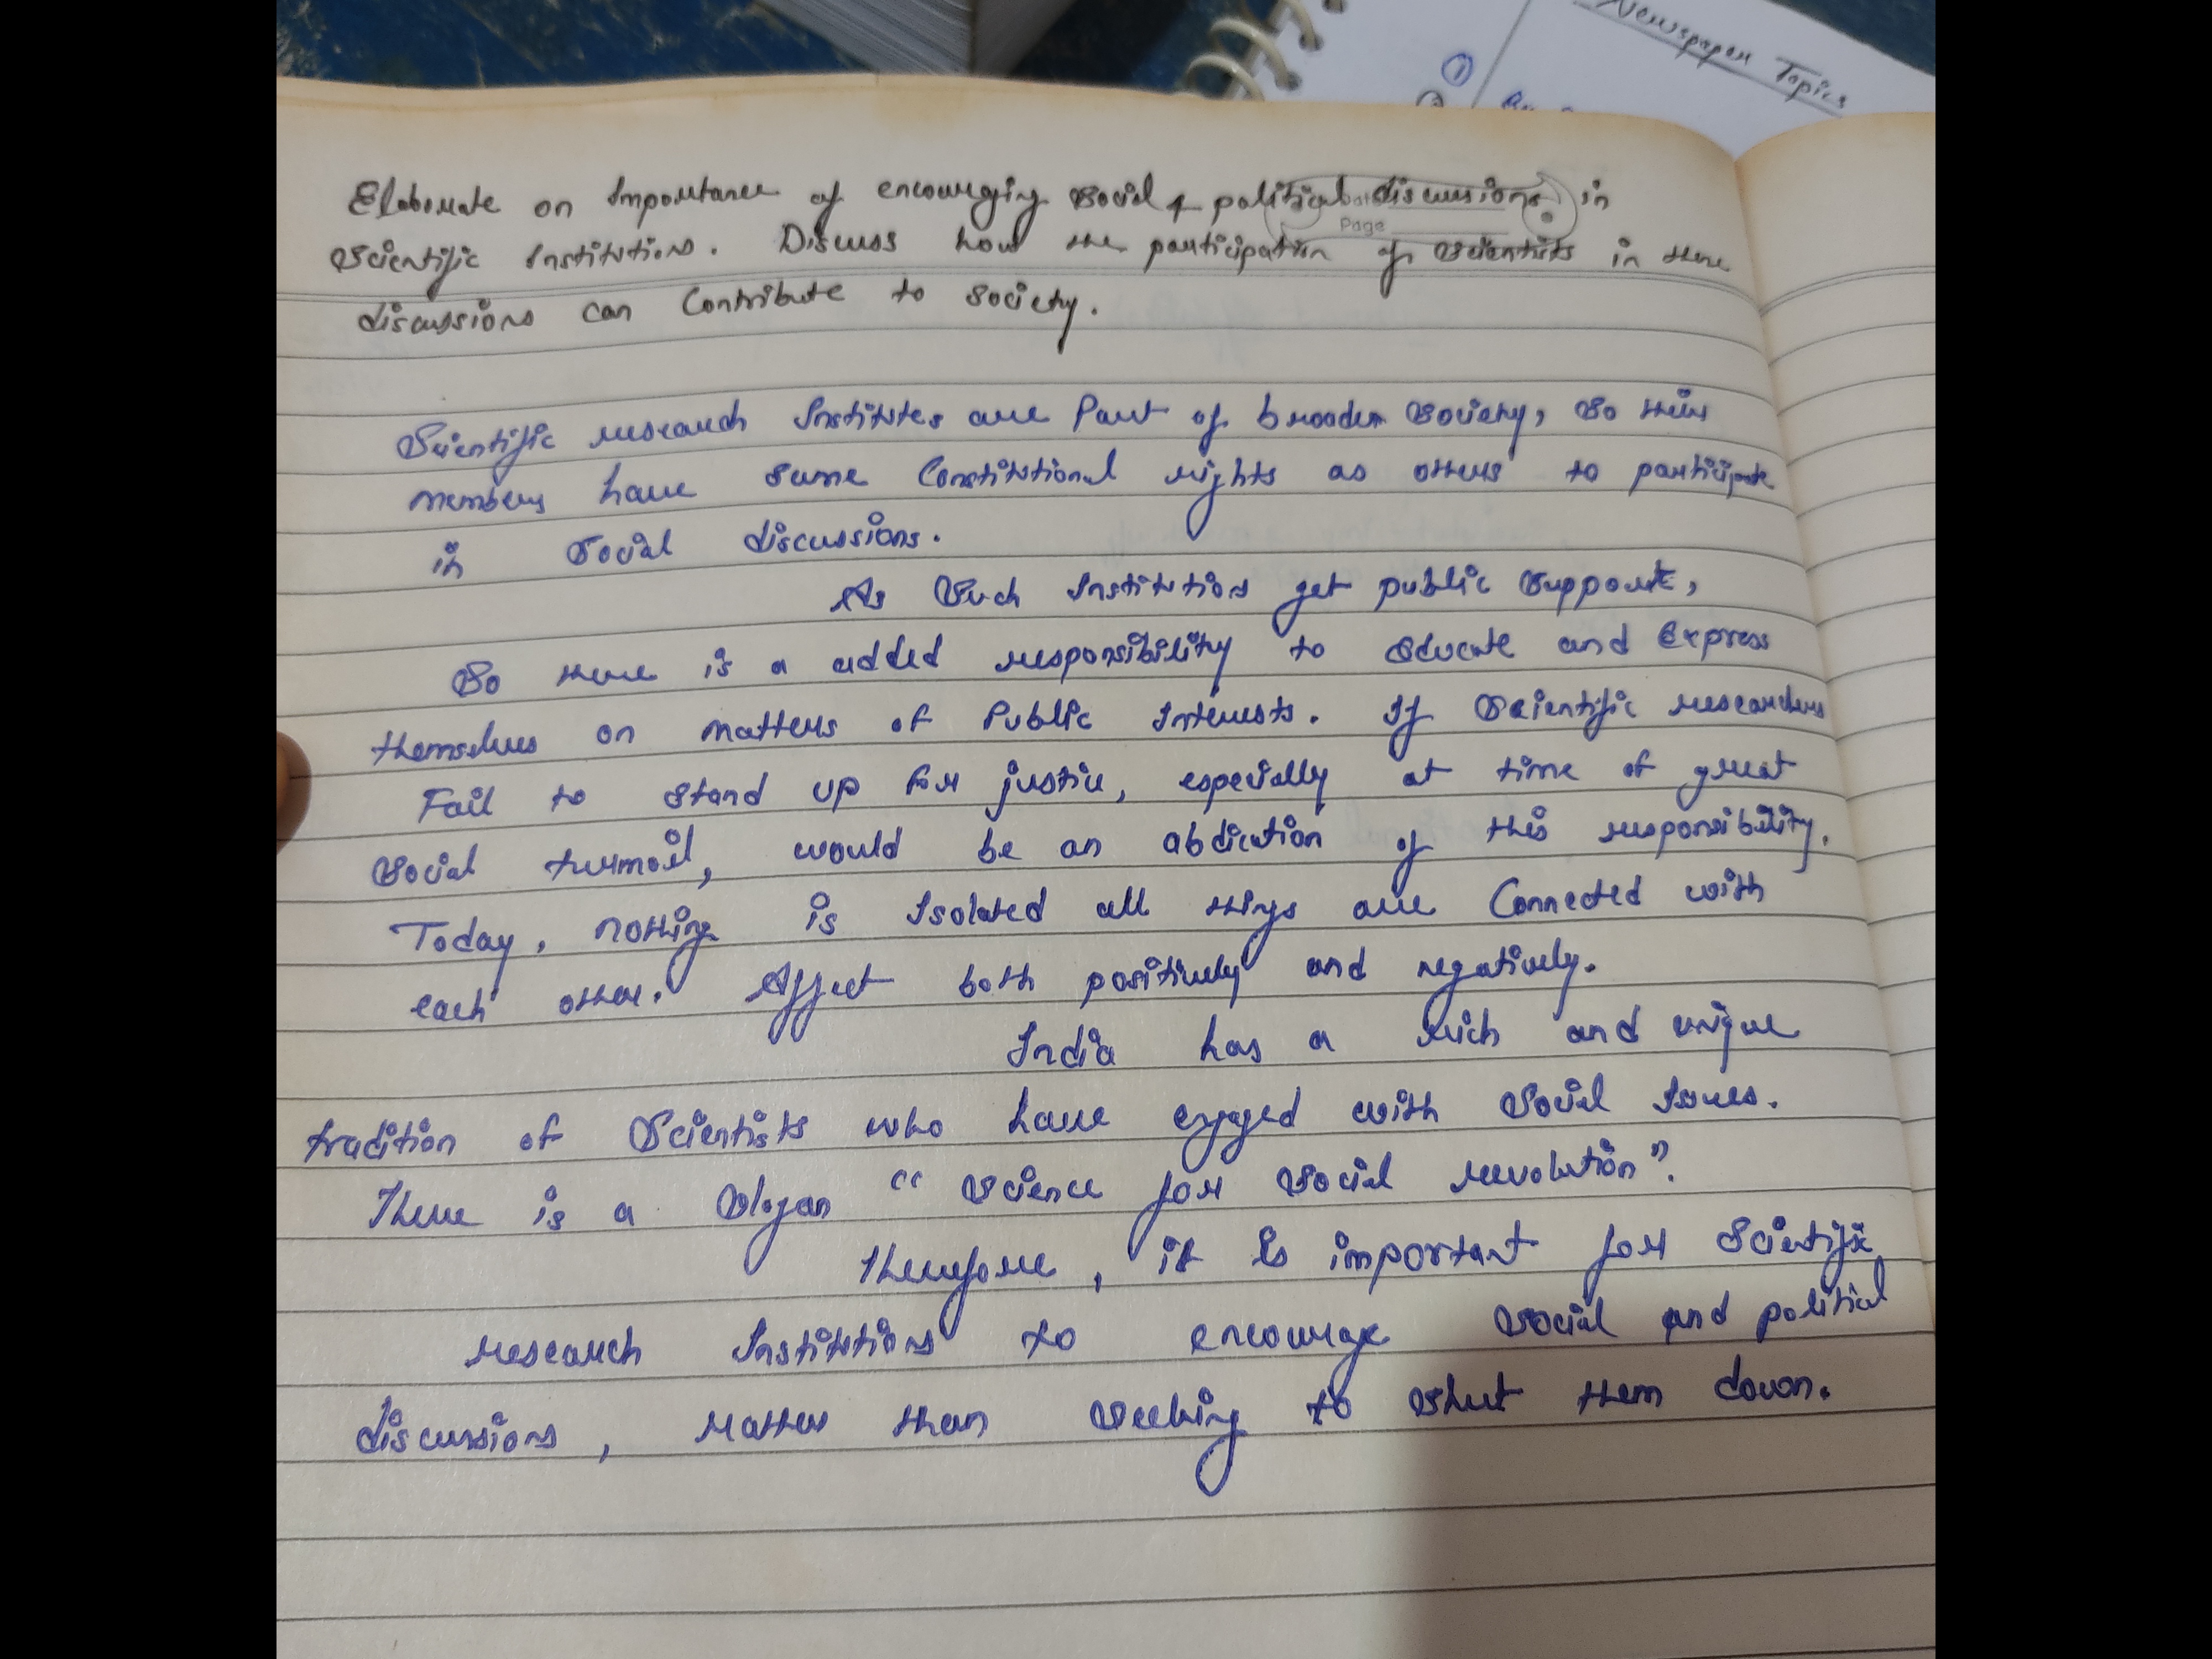 Newspaper Topics
1
Elaborate on Importance of encouraging social & political discussions in
Page
Scientific Institutions. Discuss how the participation of scientists in these
discussions can contribute to society.
Scientific research Institutes are Part of broader society, so their
members have same Constitutional rights as others to participate
in social discussions.
As such Institutions get public support,
So there is a added responsibility to educate and Express
themselves on matters of Public Interests. If scientific researchers
Fail to stand up for justice, especially at time of great
social turmoil, would be an abdication of this responsibility.
Today, nothing is Isolated all things are Connected with
each other. Affect both positively and negatively.
India has a rich and unique
tradition of Scientists who have engaged with social Issues.
There is a slogan "Science for social revolution".
Therefore, it is important for scientific
research Institutions to encourage social and political
discussions, rather than seeking to shut them down.